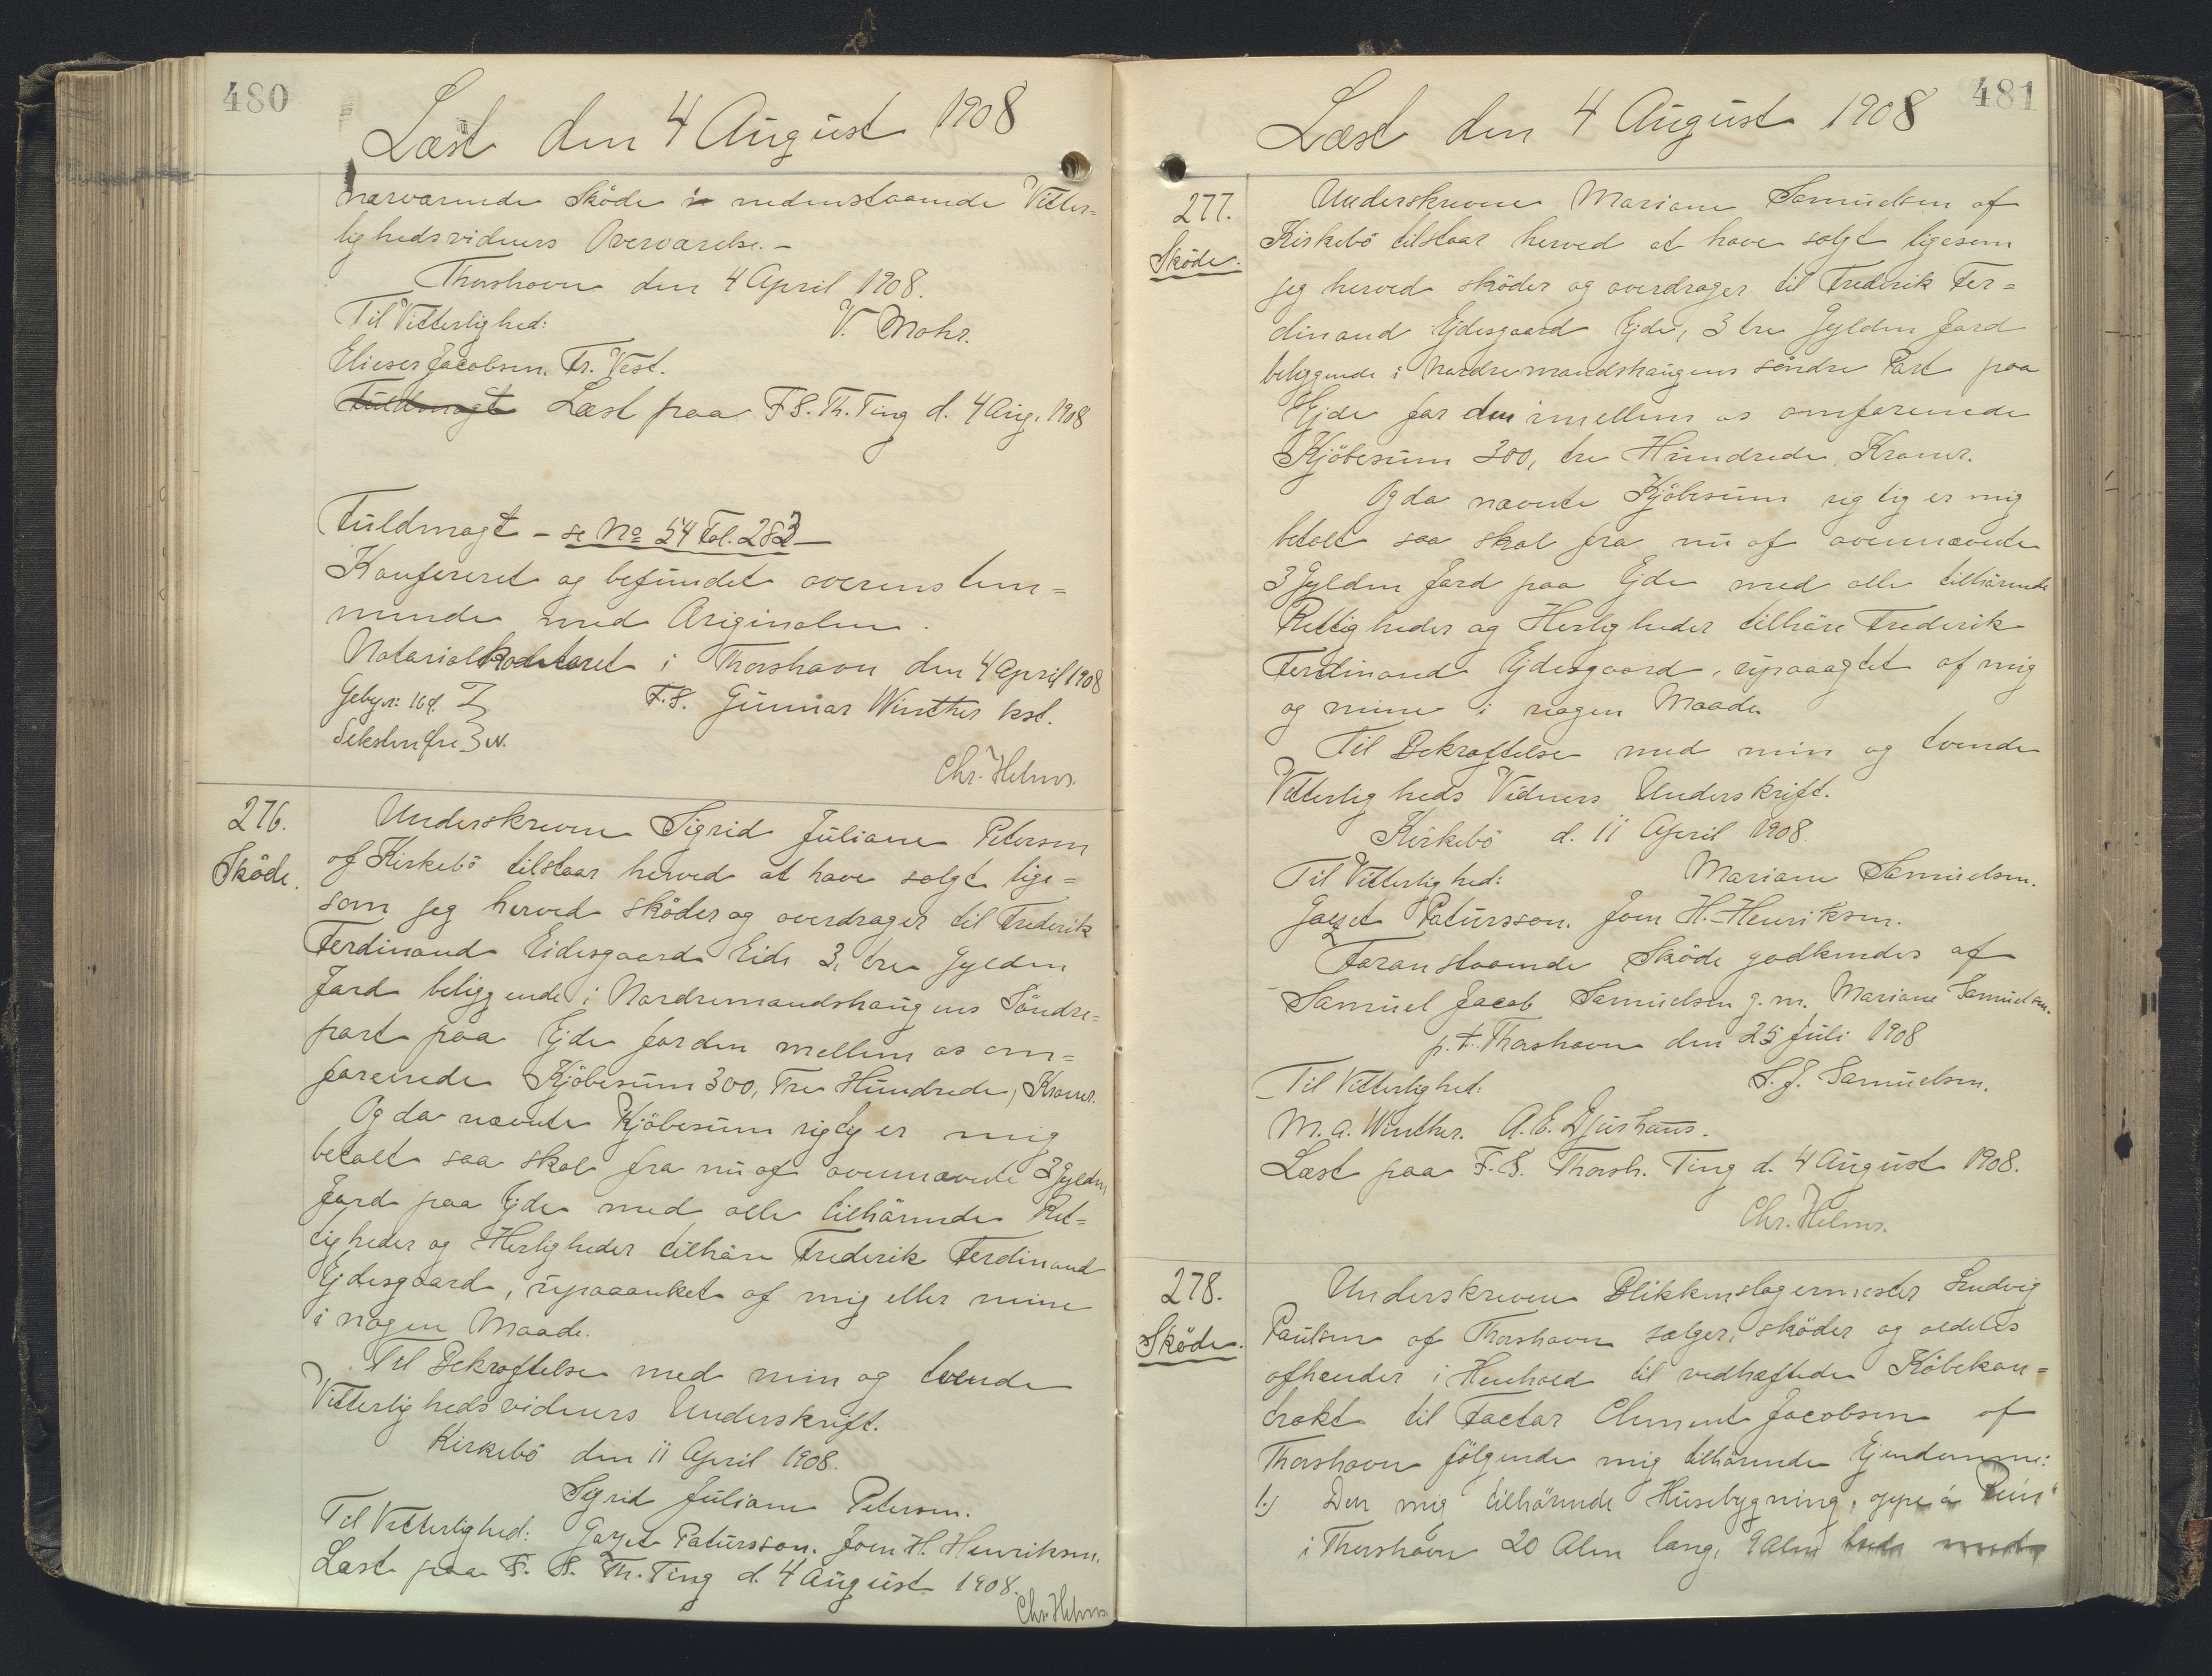 480
Læst den 4 August 1908
nærværende Sköde i nedenstaaende Vitter=
lighedsvidners Overværelse. –
Thorshavn den 4 April 1908.
Til Vitterlighed: V. Mohr.
Elieser Jacobsen. Fr. Vest.
Fuldmagt Læst paa F. S. Th. Ting d. 4 Aug. 1908
Fuldmagt – se No 54 Fol. 283 –
Konfereret og befundet overenstem=
mende med Originalen.
Notarialkontoret i Thorshavn den 4 April 1908
Gebyr: 16 Ø. F. S. Gunnar Winther kst.
Seksten Øre W.
Chr. Helms.
276.
Sköde.
Underskrevne Sigrid Juliane Petersen
af Kirkebö tilstaar herved at have solgt lige=
som jeg herved sköder og overdrager til Frederik
Ferdinand Eidesgaard Eide 3, tre Gylden
Jord beliggende i Nordremandshaugens Söndre=
part paa Ejde for den mellem os om=
forenede Kjöbesum 300, Tre Hundrede, Kroner.
Og da nævnte Kjöbesum rigtig er mig
betalt saa skal fra nu af ovennævnte 3 Gylden
Jord paa Ejde med alle tilhörende Ret=
tigheder og Herligheder tilhöre Frederik Ferdinand
Ejdesgaard, upaaanket af mig eller mine
i nogen Maade.
Til Bekræftelse med min og tvende
Vitterlighedsvidners Underskrift.
Kirkebö den 11 April 1908.
Sigrid Juliane Petersen.
Til Vitterlighed: Gazet Patursson. Joen H. Henriksen.
Læst paa F. S. Th. Ting d. 4 August 1908.
Chr. Helms.
481
Læst den 4 August 1908
277.
Sköde.
Underskrevne Mariane Samuelsen af
Kirkebö tilstaar herved at have solgt ligesom
jeg herved sköder og overdrager til Frederik Fer=
dinand Ejdesgaard Ejde, 3 tre Gylden Jord
beliggende i Nordremandshaugens söndre Part paa
Ejde for den imellem os omforenede
Kjöbesum 300, tre Hundrede, Kroner.
Og da nævnte Kjöbesum rigtig er mig
betalt saa skal fra nu af ovennævnte
3 Gylden Jord paa Ejde med alle tilhörende
Rettigheder og Herligheder tilhöre Frederik
Ferdinand Ejdesgaard, upaaagtet af mig
og mine i nogen Maade.
Til Bekræftelse med min og tvende
Vitterligheds Vidners Underskrift.
Kirkebö d. 11 April 1908.
Til Vitterlighed: Mariane Samuelsen.
Gazet Patursson. Joen H. Henriksen.
Foranstaaende Sköde godkendes af
Samuel Jacob Samuelsen g. m. Mariane Samuelsen.
p. t. Thorshavn den 25 Juli 1908
Til Vitterlighed: S. J. Samuelsen.
M. A. Winther. A. E. Djurhuus.
Læst paa F. S. Thorsh. Ting d. 4 August 1908.
Chr. Helms.
278.
Sköde.
Underskrevne Blikkenslagermester Ludvig
Poulsen af Thorshavn sælger, sköder og aldeles
afhænder i Henhold til vedhæftede Köbekon=
trakt til Factor Clement Jacobsen af
Thorshavn fölgende mig tilhörende Ejendomme:
1.) Den mig tilhörende Husebygning, oppe á
i Thorshavn 20 Alen lang, 9 Alen